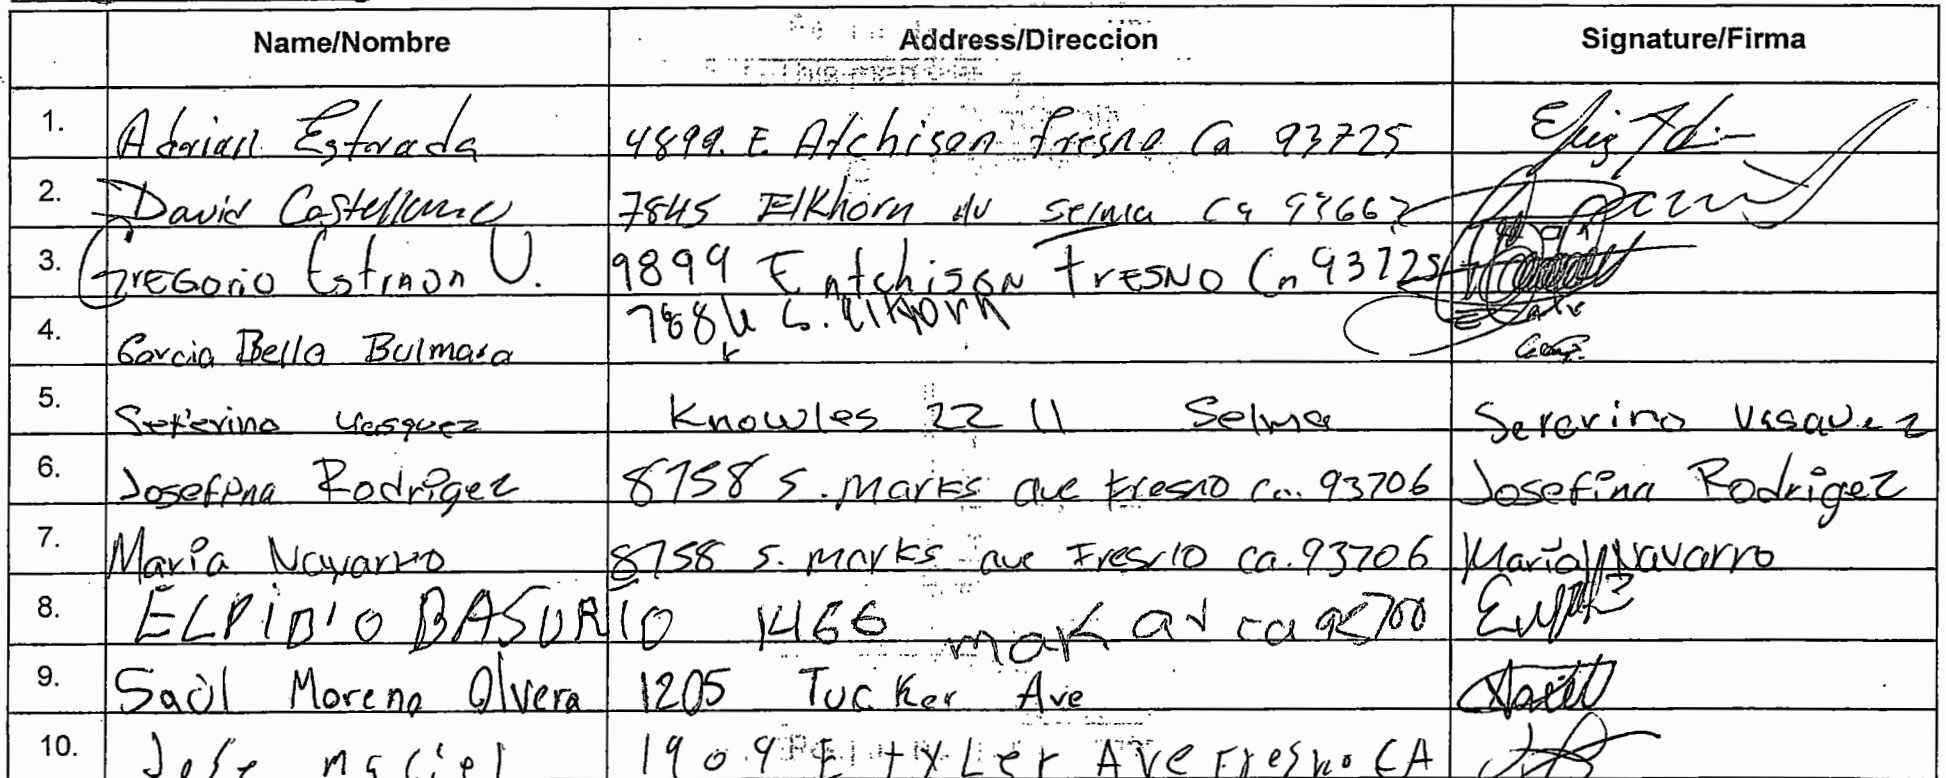 Name/Nombre Address/Direccion Signature/Firma
1. Adrian Estrada 4899. E. Atchison fresno Ca 93725
2. David Castellano 7845 Elkhorn av selma ca 93662
3. GREGORIO Estrada V. 9899 E atchison FRESNO Ca 93725
4. Garcia Bella Bulmaro 788 S. elkhorn
5. Seferino Vasquez Knowles 22 11 Selma Seferino Vasquez
6. Josefina Rodrigez 8758 s. marks ave fresno ca. 93706 Josefina Rodrigez
7. Maria Navarro 8758 s. marks ave Fresno ca. 93706 Maria Navarro
8. ELPIDIO BASURTO 1466 mark av ca
9. Saúl Moreno Olvera 1205 Tucker Ave
10. Jose maciel 1909 E tyLer AVe Fresno CA